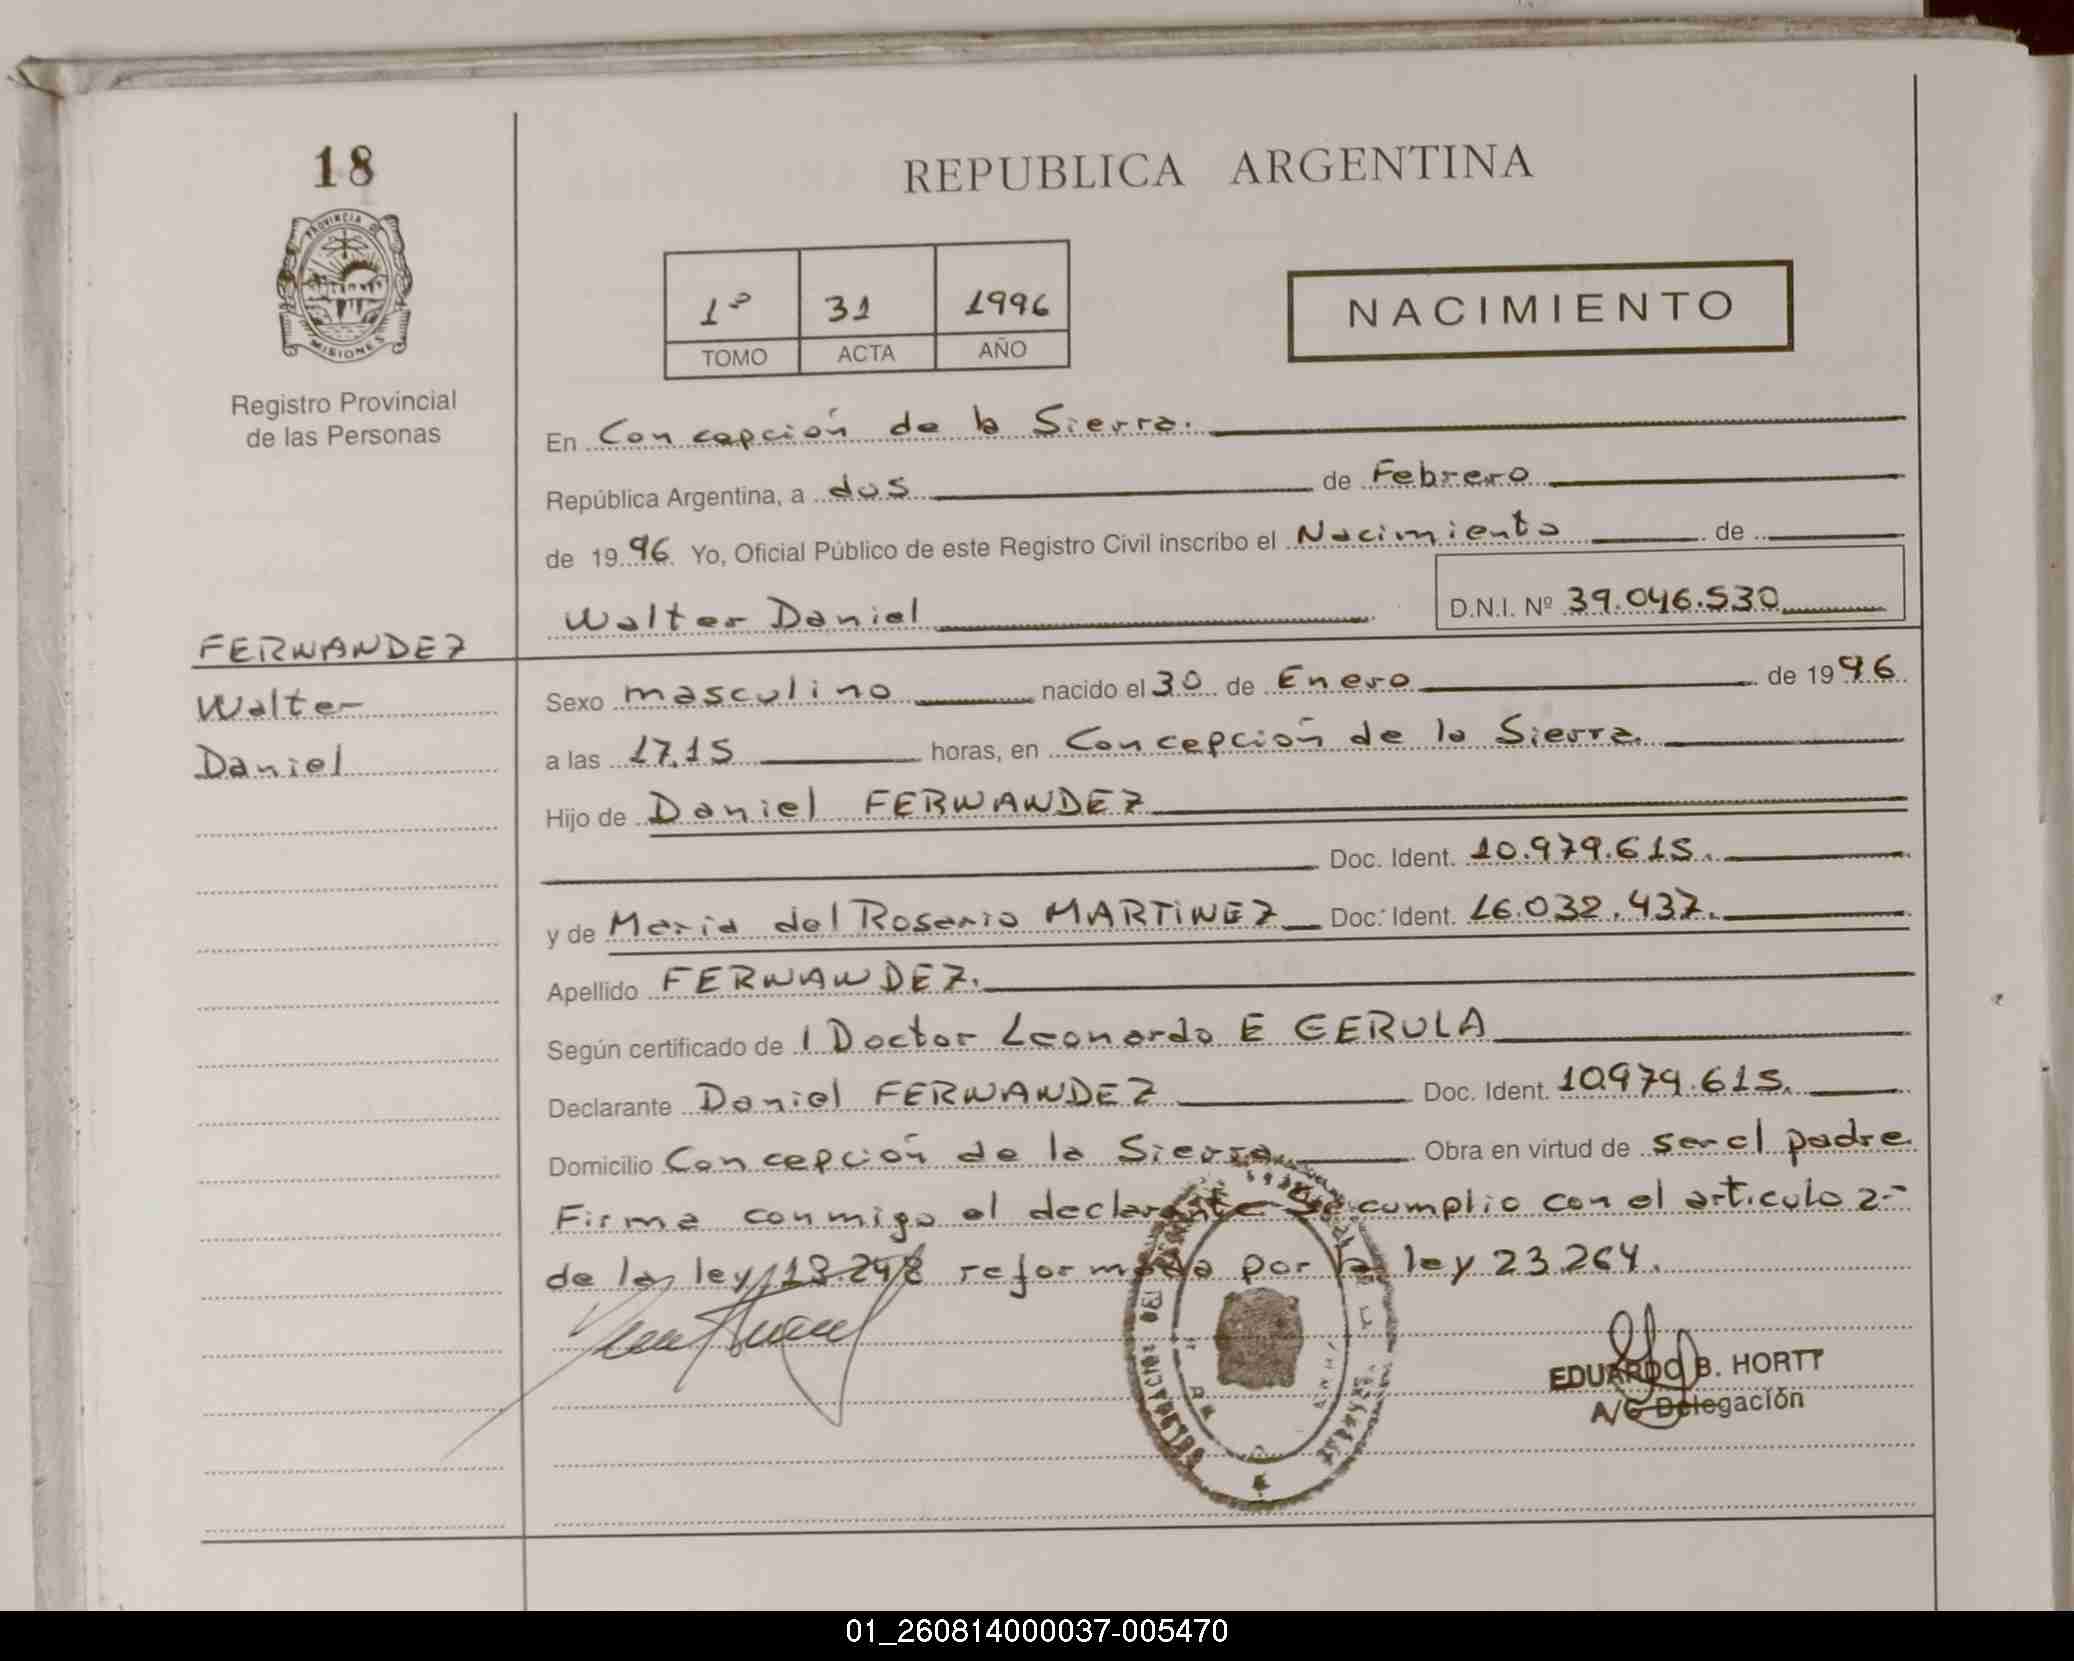 18
PROVINCIA DE
MISIONES
Registro Provincial
de las Personas
REPUBLICA ARGENTINA
1º 31 1996
TOMO ACTA AÑO
NACIMIENTO
En Concepción de la Sierra.
República Argentina, a dos de Febrero
de 1996. Yo, Oficial Público de este Registro Civil inscribo el Nacimiento de
Walter Daniel D.N.I. Nº 39.046.530
FERNANDEZ
Walter
Daniel
Sexo masculino nacido el 30 de Enero de 1996
a las 17.15 horas, en Concepción de la Sierra.
Hijo de Daniel FERNANDEZ
Doc. Ident. 10.979.615.
y de Maria del Rosario MARTINEZ Doc. Ident. 16.032.437.
Apellido FERNANDEZ.
Según certificado de l Doctor Leonardo E GERULA
Declarante Daniel FERNANDEZ Doc. Ident. 10979.615.
Domicilio Concepción de la Sierra Obra en virtud de ser el padre
Firma conmigo el declarante Se cumplio con el articulo 2º
de la ley 18.248 reformada por la ley 23.264.
EDUARDO B. HORTT
A/C Delegación
01_260814000037-005470